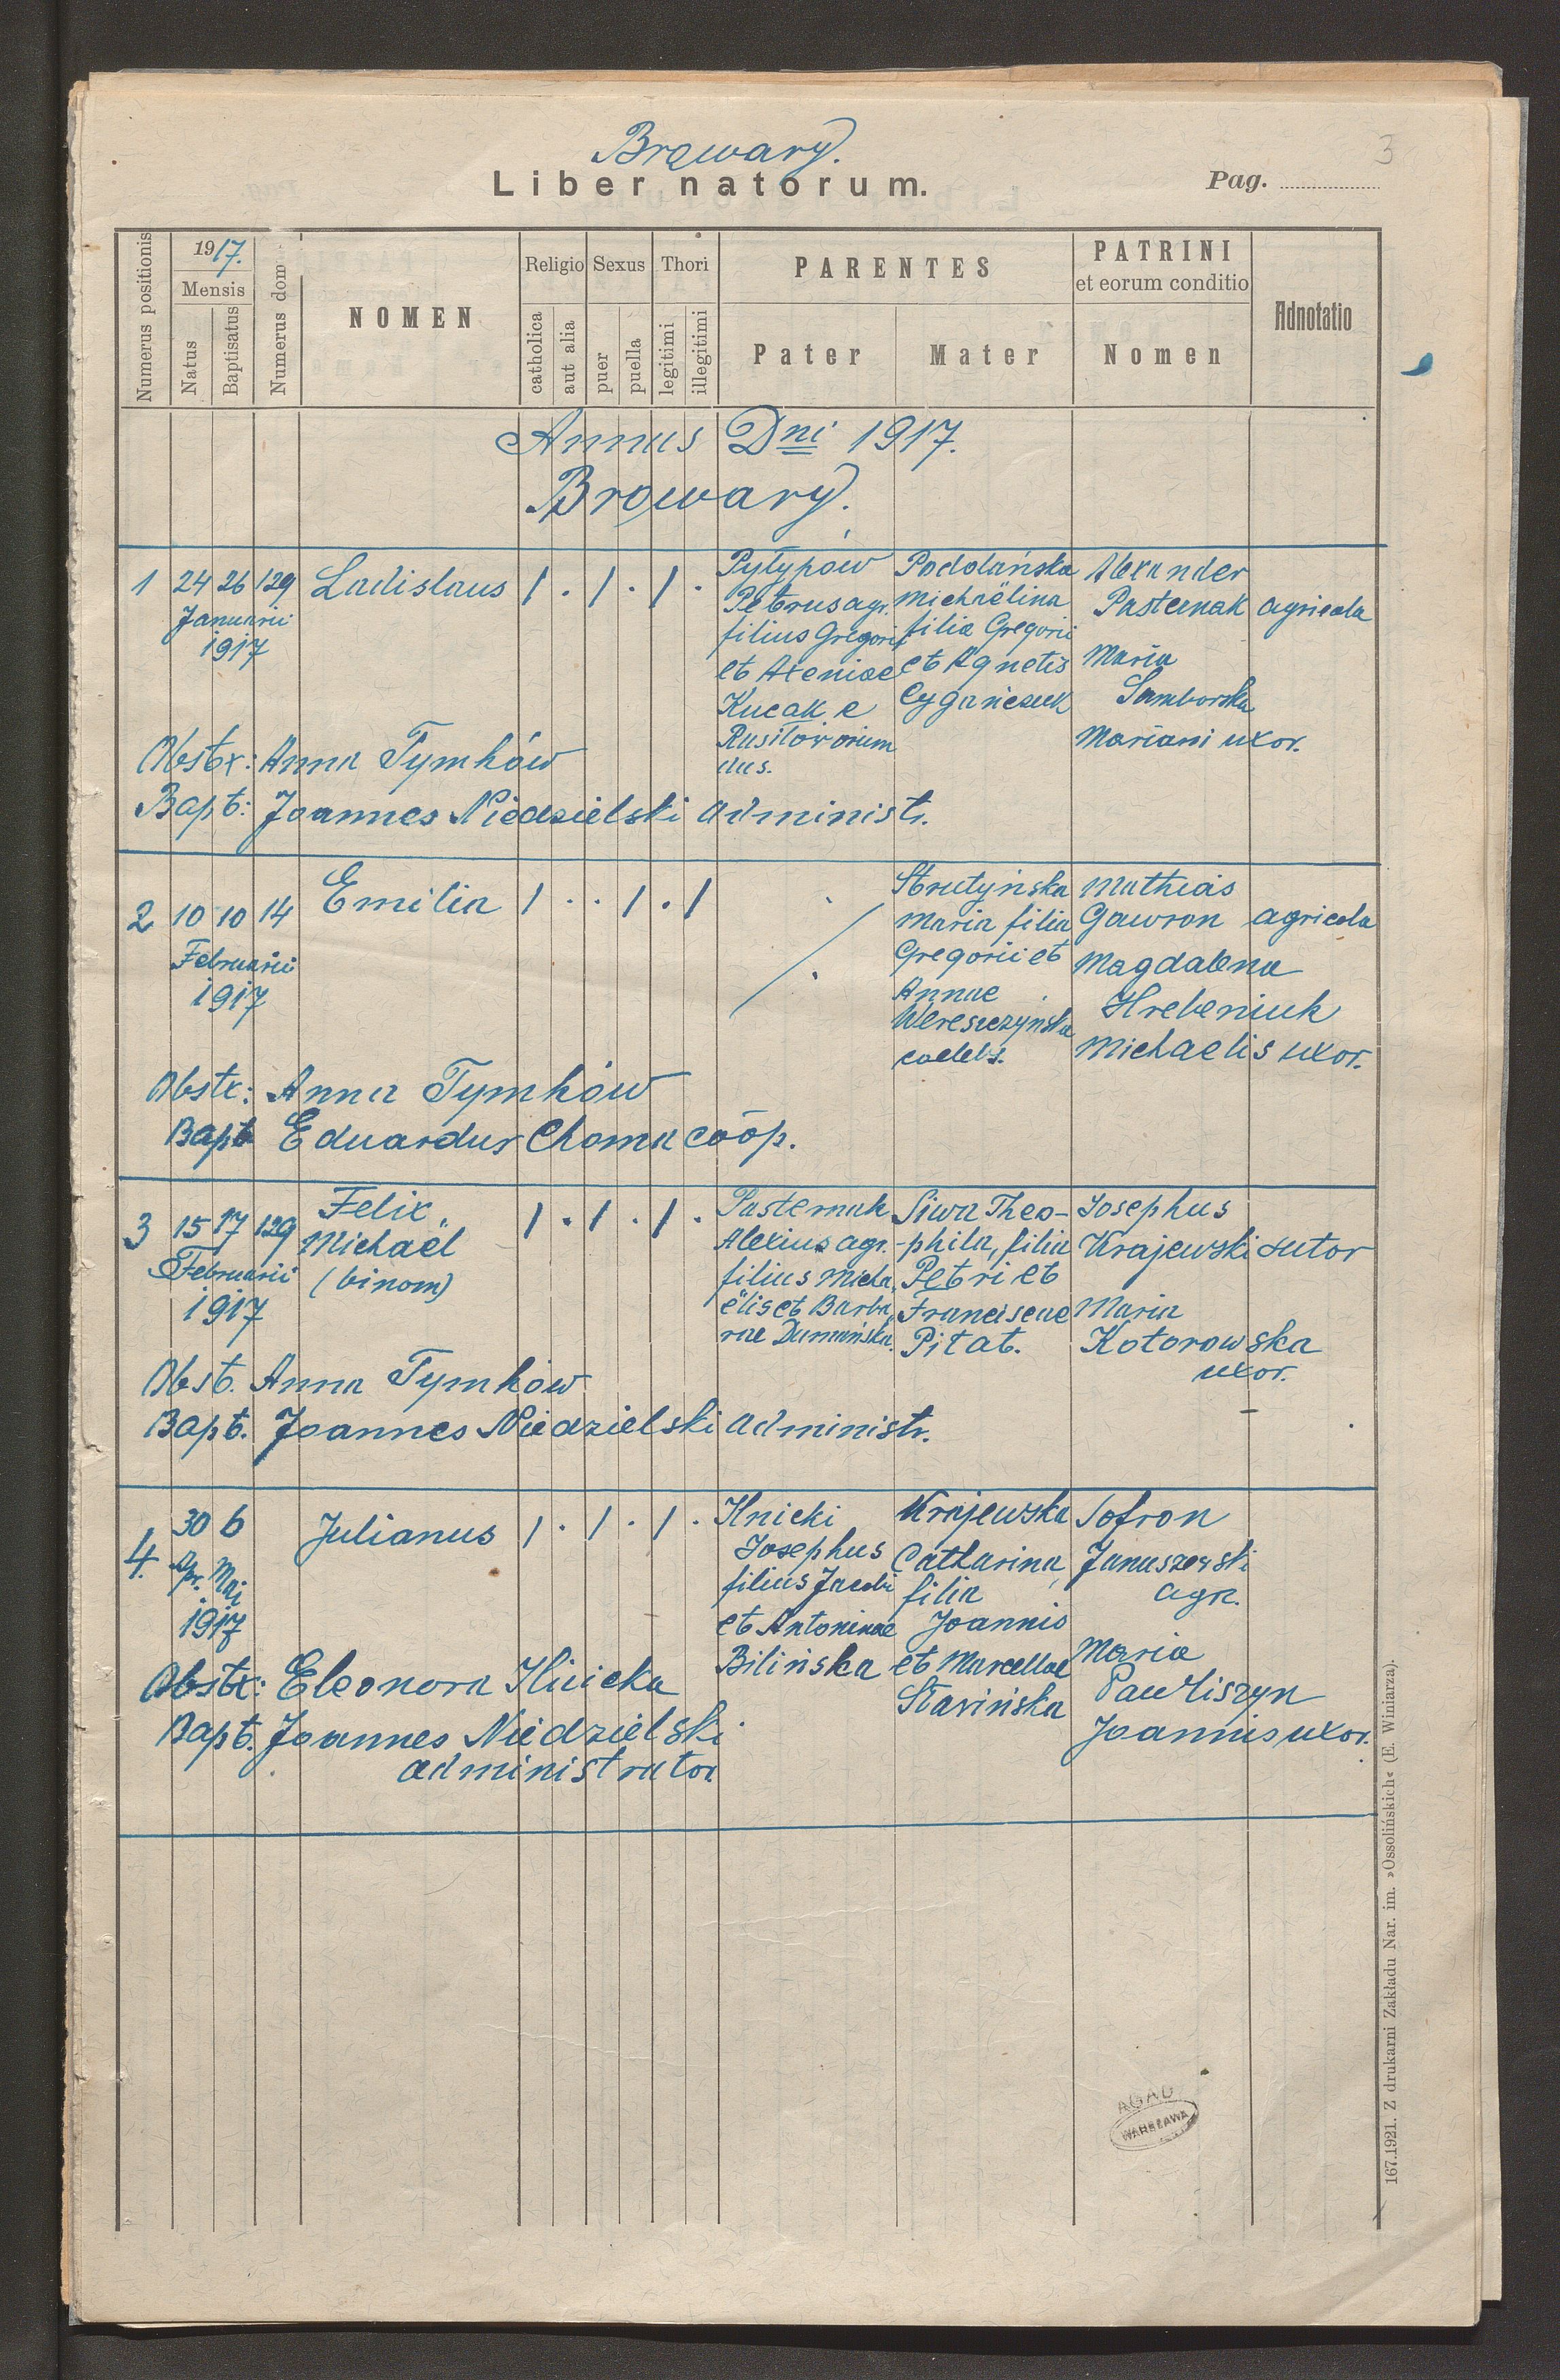 Browary.
3
Liber natorum.
Pag.
Numerus positionis
1917.
Mensis
Natus
Baptisatus
Numerus dom
NOMEN
Religio
catholica
aut alia
Sexus
puer
puella
Thori
legitimi
illegitimi
PARENTES
Pater
Mater
PATRINI
et eorum conditio
Nomen
Adnotatio
Annus Dni 1917.
Browary.
1 24 26 129 Ladislaus 1 . 1 . 1 .
Januarii
1917
Pytypów
Petrus agr.
filius Gregorii
et Xeniae
Kucak e
Podolańska
Michaëlina
filia Gregorii
et Agnetis
Cygańczuk
Alexander
Pasternak agricola
Maria
Samborska
Mariani uxor.
Obstx: Anna Tymków
Bapt: Joannes Niedzielski administr.
2 10 10 14 Emilia 1 . . 1 . 1
Februarii
1917
Strutyńska
Maria filia
Gregorii et
Annae
Wereszczyńska
caelebs.
Mathias
Gawron agricola
Magdalena
Hrebeniuk
Michaelis uxor.
Obstx: Anna Tymków
Bapt Eduardus Choma coop.
3 15 17 129 Felix 1 . 1 . 1 .
Michaël
(binom)
Februarii
1917
Pasternak
Alexius agr.
filius Micha
ëlis et Barba
rae Damańska
Siwa Theo-
-phila, filia
Petri et
Franciscae
Pitat.
Josephus
Krajewski sutor
Maria
Kotorowska
uxor.
Obst. Anna Tymków
Bapt. Joannes Niedzielski administr.
4. 30 6 Julianus 1 . 1 . 1 .
Apr. Maj
1917
Knicki
Josephus
filius Jacobi
et Antoninae
Bilińska
Krajewska
Catharina,
filia
Joannis
et Marcellae
Stavińska
Sofron
Januszewski
agr.
Maria
Pawliszyn
Joannis uxor.
Obstx: Eleonora Ilnicka
Bapt. Joannes Niedzielski
administrator.
AGAD
WARSZAWA
167.1921. Z drukarni Zakładu Nar. im. »Ossolińskich« (E. Winiarza).